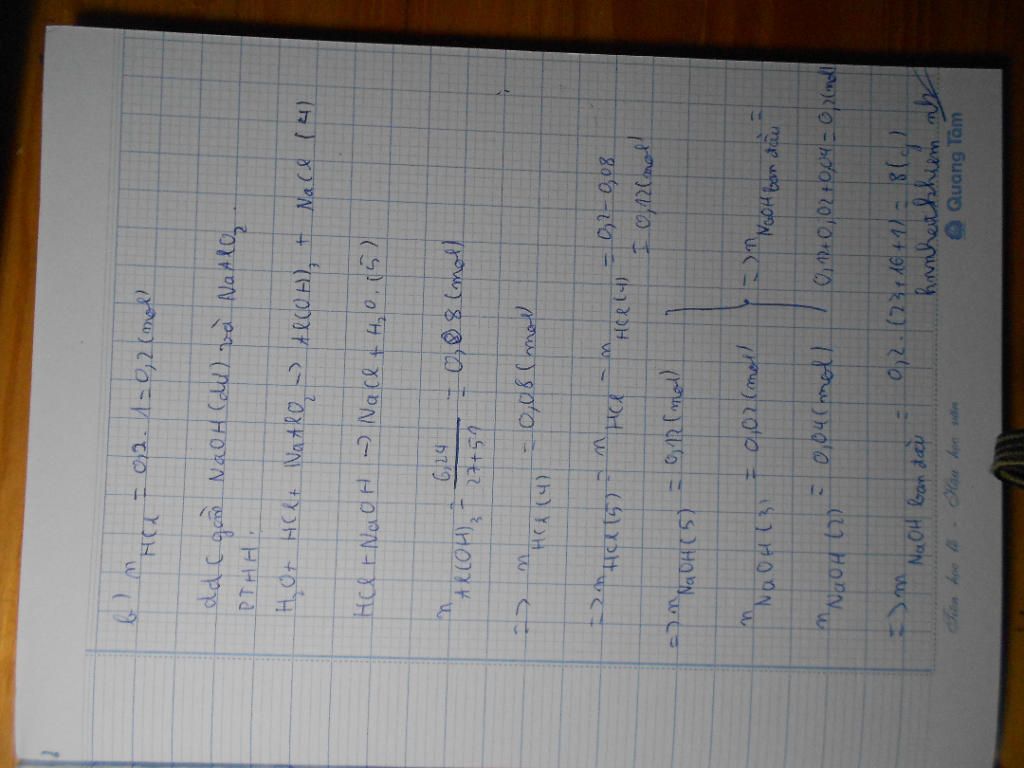 b) nHCl = 0,2. 1 = 0,2 (mol)
dd C gồm NaOH (dư) và NaAlO2.
PTHH:
H2O + HCl + NaAlO2 -> Al(OH)3 + NaCl (4)
HCl + NaOH -> NaCl + H2O. (5)
nAl(OH)3 = 6,24 / 27+51 = 0,08 (mol)
=> nHCl (4) = 0,08 (mol)
=> nHCl (5) = nHCl - nHCl (4) = 0,2 - 0,08
= 0,12 (mol)
=> nNaOH (5) = 0,12 (mol)
nNaOH (3) = 0,02 (mol) => nNaOH ban đầu =
nNaOH (2) = 0,04 (mol) 0,12+0,02+0,04=0,2 (mol
=> mNaOH ban đầu = 0,2. (23+16+1) = 8 (g)
Tiên học lễ - Hậu học văn
Quang Tâm